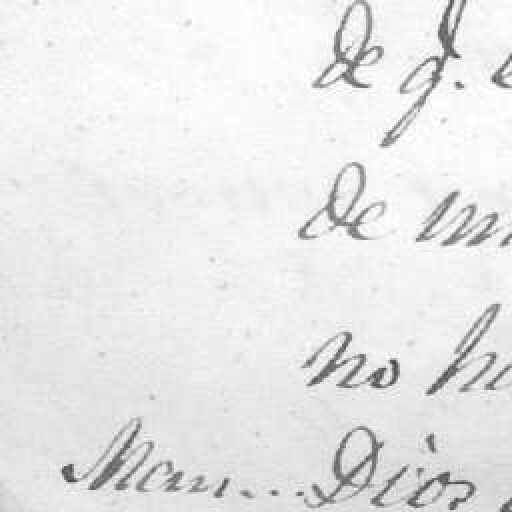 De q.
De
no
Man... Dios